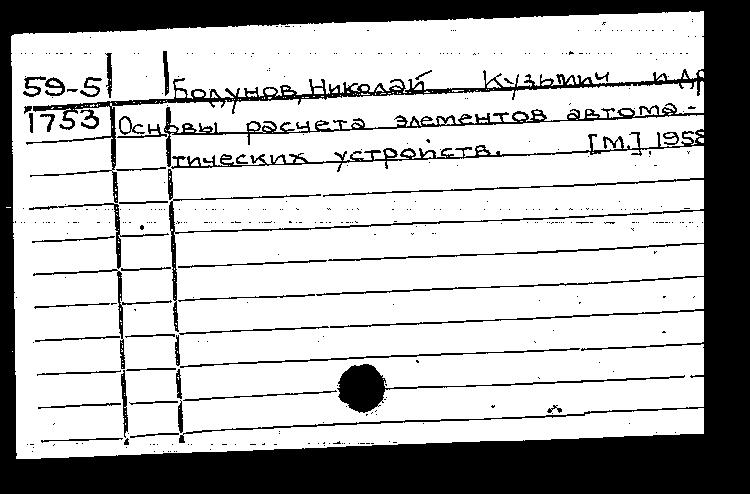 59-5 Бодунов, Николай Кузьмич и др
1753 Основы расчета элементов автома-
тических устройств. [М.] 1958